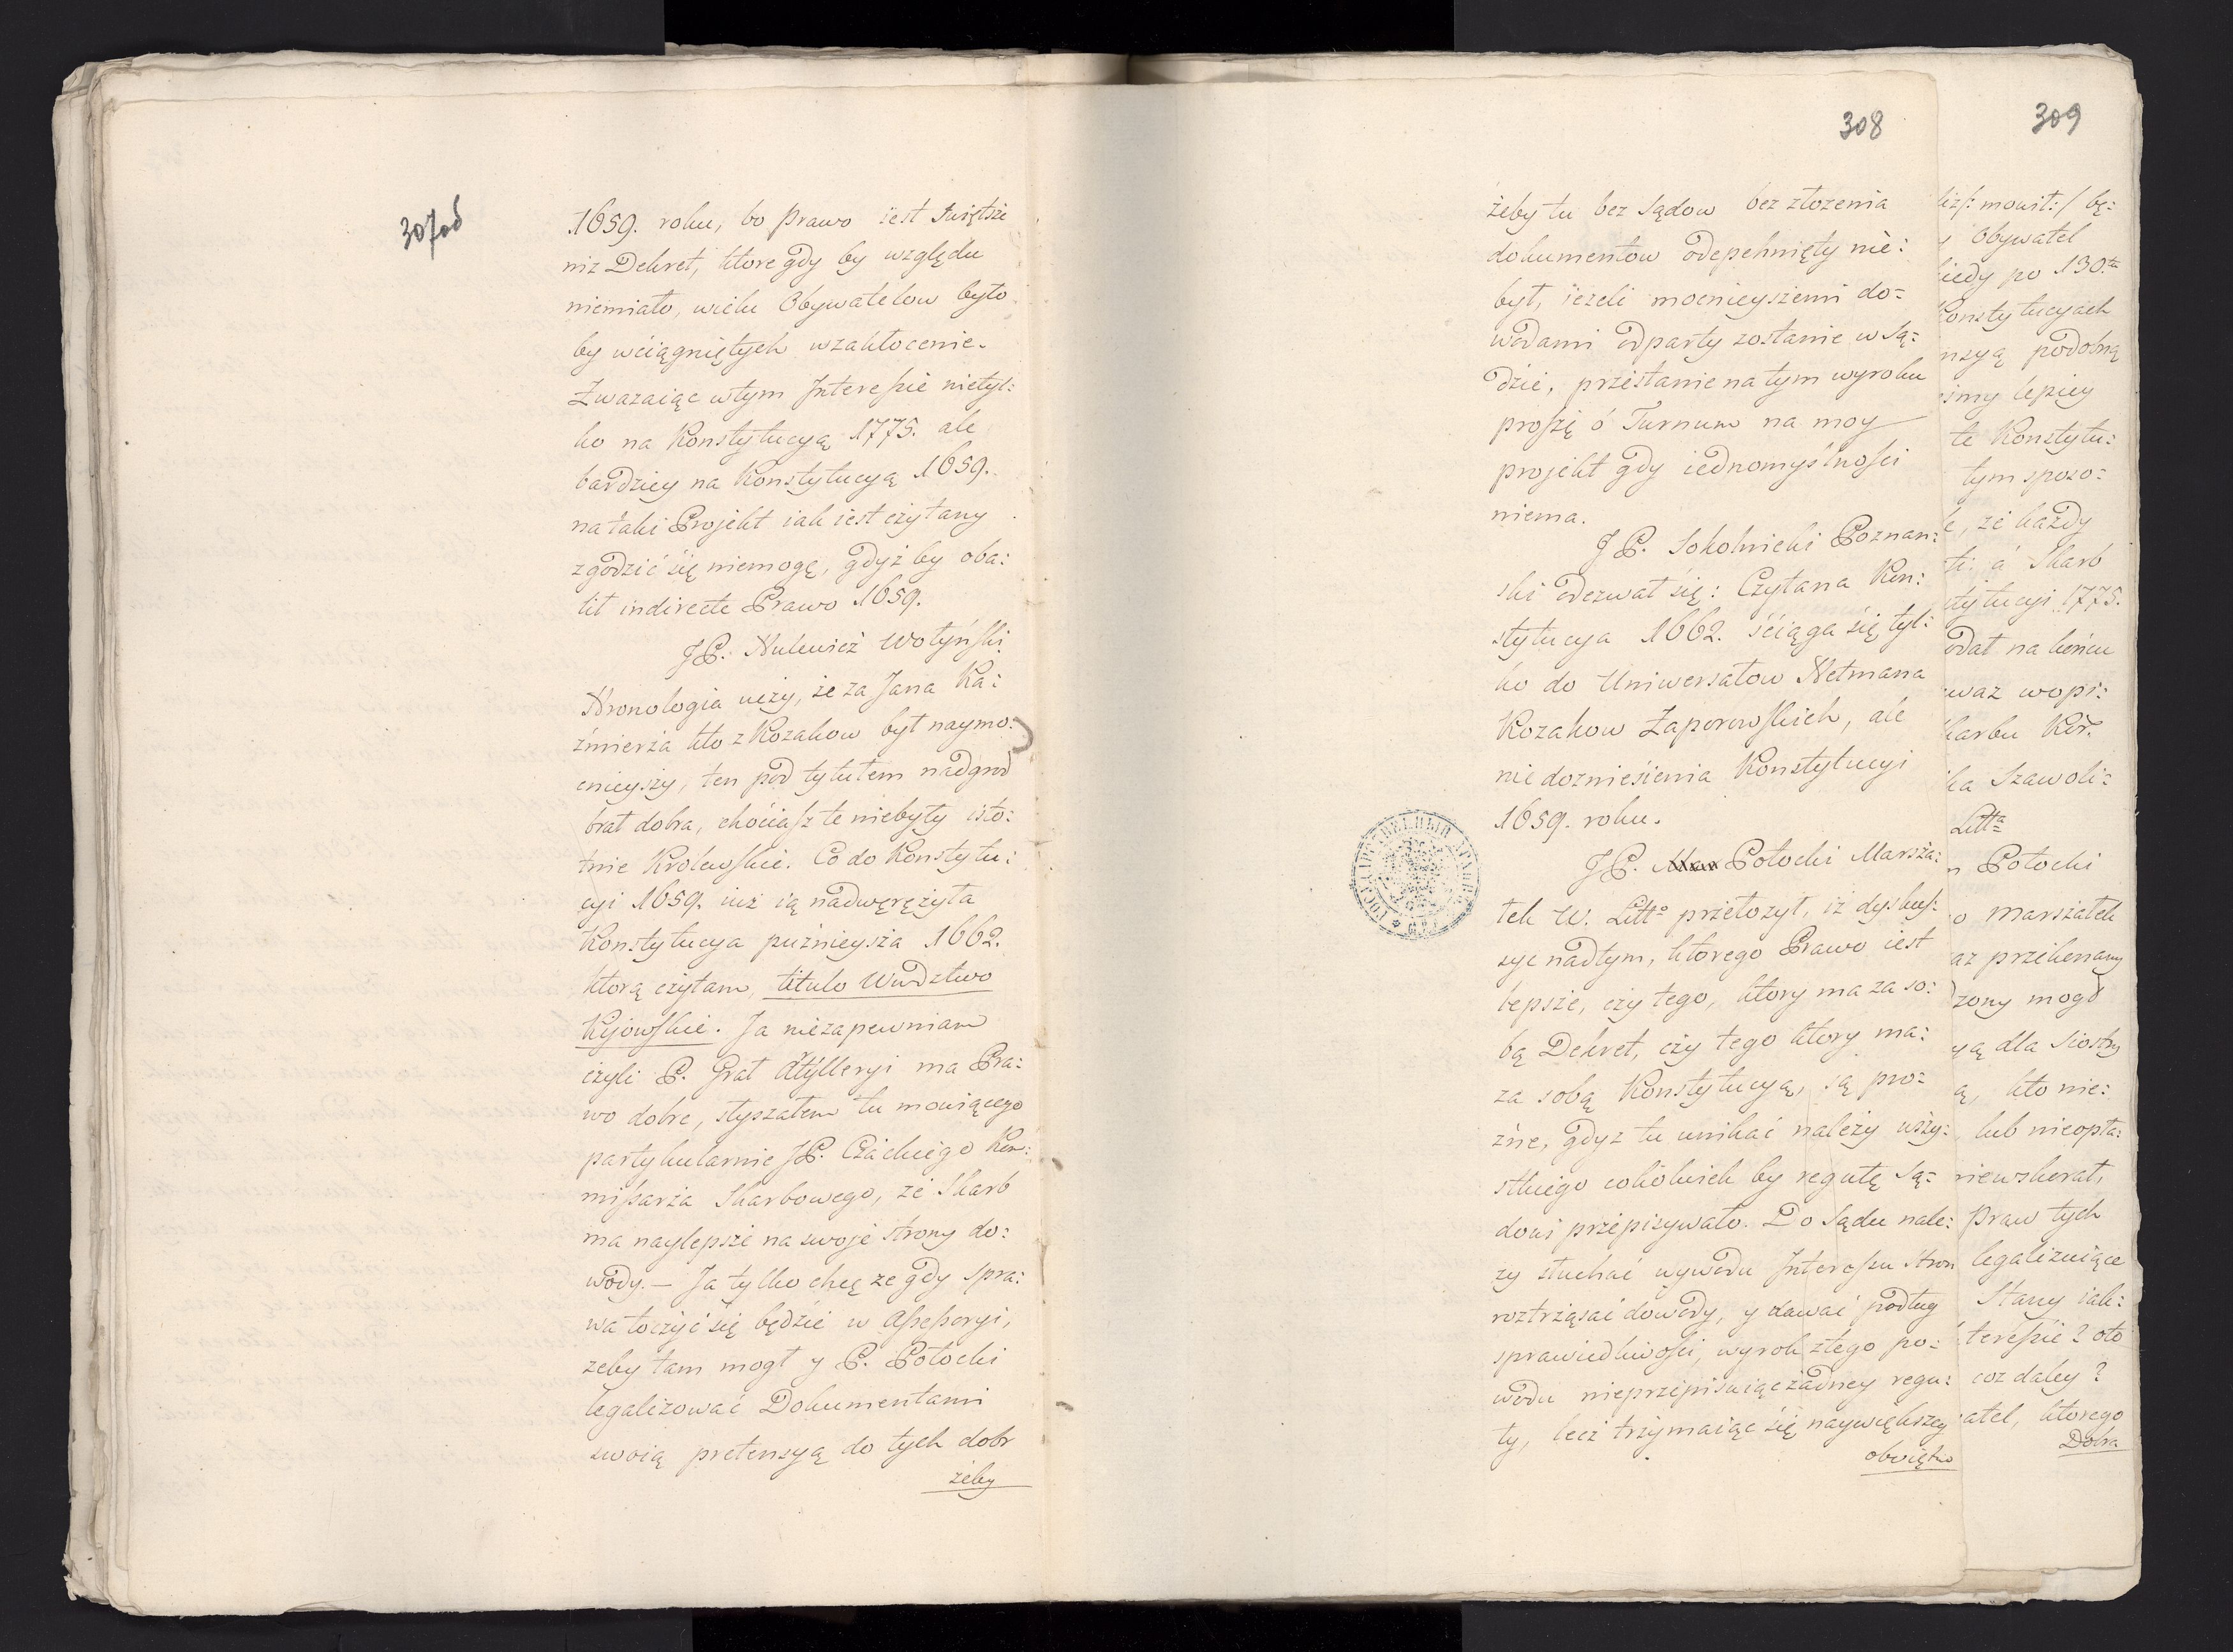 307об
1659. roku, bo Prawo iest Swiętsze
niz Dekret, ktore gdy by względu
niemiało, wielu Obywatelow było
by wciągniętych wzakłocenie.
Zwazaiąc wtym Interessie nietyl:
ko na Konstytucyą 1775. ale
bardziey na Konstytucyą 1659.
na taki Projekt iak iest czytany
zgodzić się niemogę, gdyż by oba:
lił indirecte Prawo 1659.
JP. Hulewicz Wołyński
Hronologia uczy, ze za Jana Ka:
źmierza kto z Kozakow był naymo:
cnieyszy, ten pod tytułem nadgrod
brał dobra, chociasz te niebyły isto:
tnie Krolewskie. Co do Konstytu:
cyi 1659. iuż ią nadwęrężyła
Konstytucya puznieysza 1662.
ktorą czytam, titulo Wwdztwo
Kijowskie. Ja niezapewniam
czyli P. Grał Atylleryi ma Pra:
wo dobre, słyszałem tu mowiącego
partykularnie JP. Czackiego Kom:
missarza Skarbowego, ze Skarb
ma naylepsze na swoje strony do:
wody. — Ja tylko chcę ze gdy spra:
wa toczyć się będzie w Assessoryi,
zeby tam mogł y P. Potocki
legalizować Dokumentami
swoią pretensyą do tych dobr
żeby
308
żeby tu bez Sądow bez złozenia
dokumentow odepchnięty nie:
był, iezeli mocnieyszemi do=
wodami odparty zostanie w Są:
dzie, przestanie na tym wyroku
proszę o Turnum na moy
projekt gdy iednomyślnosci
niema.
JP. Sokolnicki Poznan:
ski odezwał się: Czytana Kon:
stytucya 1662. ściąga się tyl:
ko do Uniwersałow Hetmana
Kozakow Zaporowskich, ale
nie dozniesienia Konstytucyi
1659. roku.
JP. Potocki Marsza:
łek W. Litt° przełozył, iż dyskus:
sye nadtym, ktorego Prawo iest
lepsze, czy tego, ktory ma za so:
bą Dekret, czy tego ktory ma:
za sobą Konstytucyą, są pro=
żne, gdyz tu unikać należy wszy:
stkiego cokolwiek by regułę Są=
dowi przepisywało. Do Sądu nale:
zy słuchać wywodu Interessu stron
roztrząsać dowody, y dawać podług
sprawiedliwości, wyrok ztego po=
wodu nieprzepisuiąc żadney regu:
ły, lecz trzymaiąc się naywiększey
oboiętno
309
mowił:/ bę:
Obywatel
po 130.tu
podobną
lepiey
te Konstytu:
tym sposo=
ze każdy
á Skarb
1775.
na końcu
wopi:
Kor.
Szawoli=
Litta
Potocki
Marszałek
przekonany
mogł
dla Siostry
kto nie:
lub nieopła:
Praw tych
legalizuiące
Stany iak:
oto
coz daley?
ktorego
Dobra